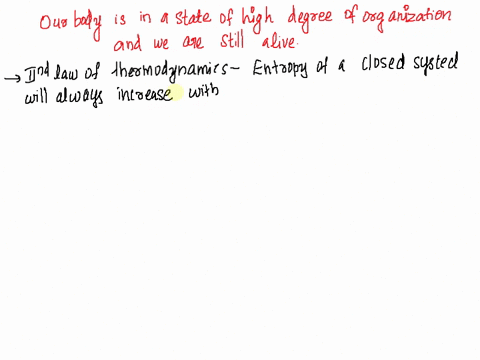 Our body is in a state of high degree of organization
and we are still alive.
→ IInd law of thermodynamics - Entropy of a closed systed
will always increase with